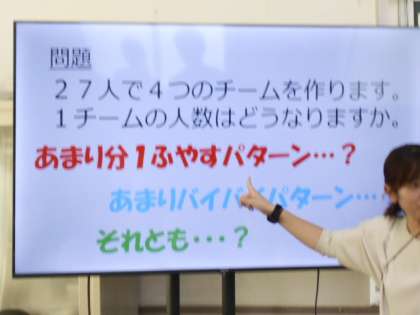 問題
２７人で４つのチームを作ります。
１チームの人数はどうなりますか。
あまり分１ふやすパターン…？
あまりバイバイパターン…
それとも・・・？